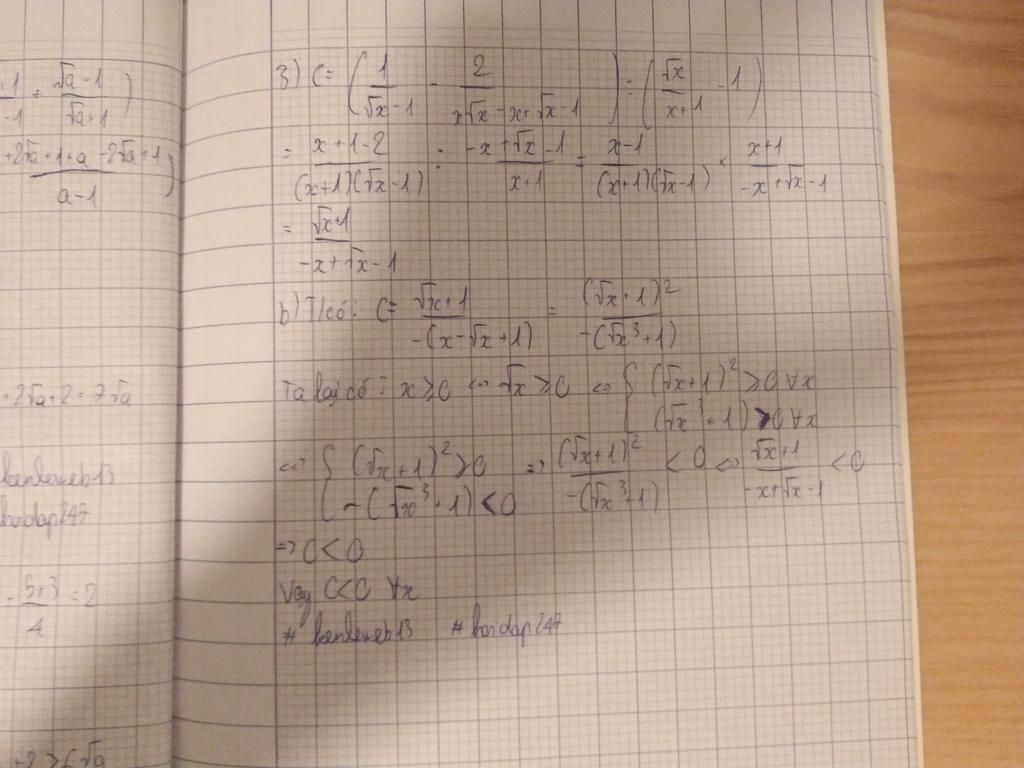 +1 + √a-1
-1 √a+1
+2√a+1+a-2√a+1
a-1
+2√a+2=7√a
- +3 = 2
4
+2 > 6√a
3) C= (1/(√x-1) - 2/(x√x-x+√x-1)) : (√x/(x+1) - 1)
= (x+1-2)/((x+1)(√x-1)) : (-x+√x-1)/(x+1) = (x-1)/((x+1)(√x-1)) × (x+1)/(-x+√x-1)
= (√x+1)/(-x+√x-1)
b) T/có: C= (√x+1)/(-(x-√x+1)) = (√x+1)²/(-(√x³+1))
Ta lại có: x≥0 ⇔ √x≥0 ⇔ { (√x+1)²>0 ∀x
(√x³+1)>0 ∀x
⇔ { (√x+1)²>0 ⇒ (√x+1)²/(-(√x³+1)) < 0 ⇔ (√x+1)/(-x+√x-1) < 0
-(√x³+1)<0
⇒ C<0
Vậy C<0 ∀x